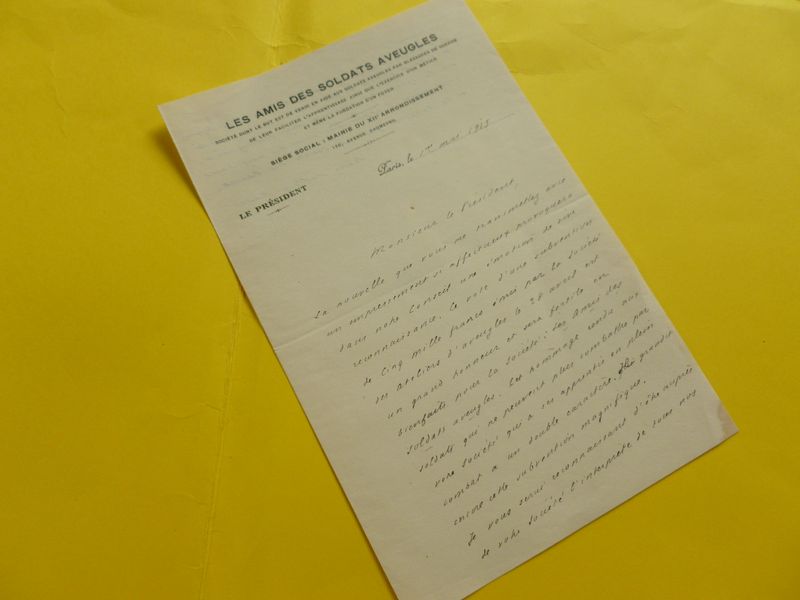 LES AMIS DES SOLDATS AVEUGLES
SOCIÉTÉ DONT LE BUT EST DE VENIR EN AIDE AUX SOLDATS AVEUGLES PAR BLESSURES DE GUERRE
DE LEUR FACILITER L'APPRENTISSAGE AINSI QUE L'EXERCICE D'UN MÉTIER
ET MÊME LA FONDATION D'UN FOYER
SIÈGE SOCIAL : MAIRIE DU XIIe ARRONDISSEMENT
130, AVENUE DAUMESNIL
Paris, le 1er mai 1915
LE PRÉSIDENT
Monsieur le Président,
La nouvelle que vous me transmettez avec
un empressement si affectueux provoquera
dans notre Conseil une émotion de vive
reconnaissance. Le vote d'une subvention
de Cinq mille francs émis par la Société
des Ateliers d'aveugles le 28 avril est
un grand honneur et sera fertile en
bienfaits pour la Société : Les Amis des
soldats aveugles. Cet hommage rendu aux
soldats qui ne peuvent plus combattre par
votre société qui a ses apprentis en plein
combat a un double caractère. Il grandit
encore cette subvention magnifique.
Je vous serai reconnaissant d'être auprès
de votre Société l'interprète de tous nos